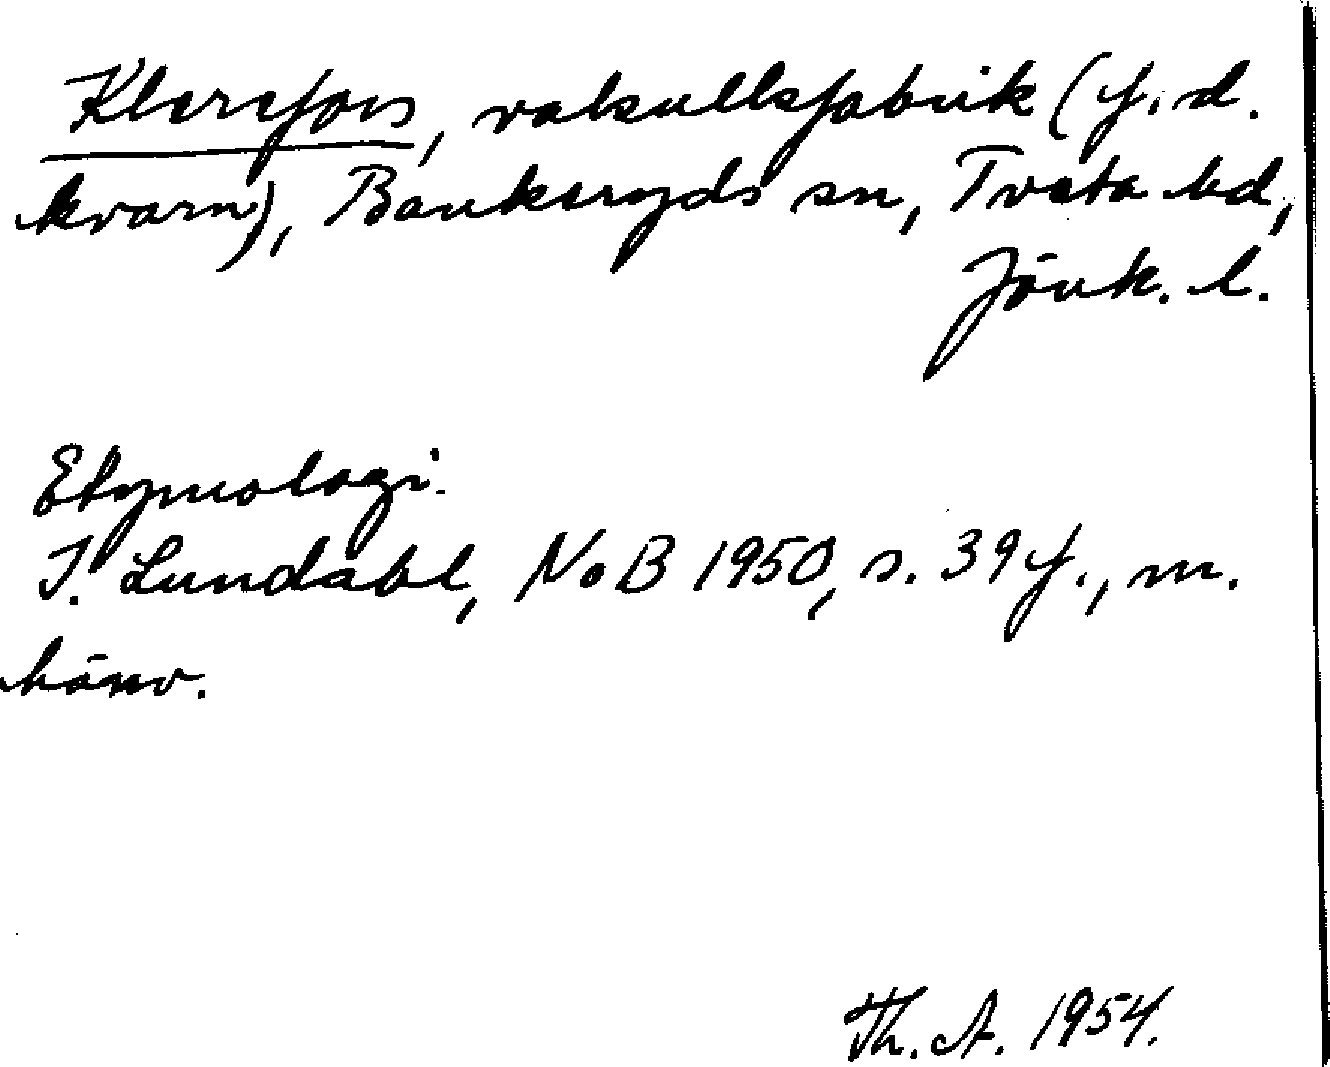 Klerefors, vaksullsfabrik (f. d.
kvarn), Bankeryds sn, Tveta hd,
Jönk. l.
Etymologi.
I. Lundahl, NoB 1950, s. 39 f., m.
hänv.
Th. A. 1954.